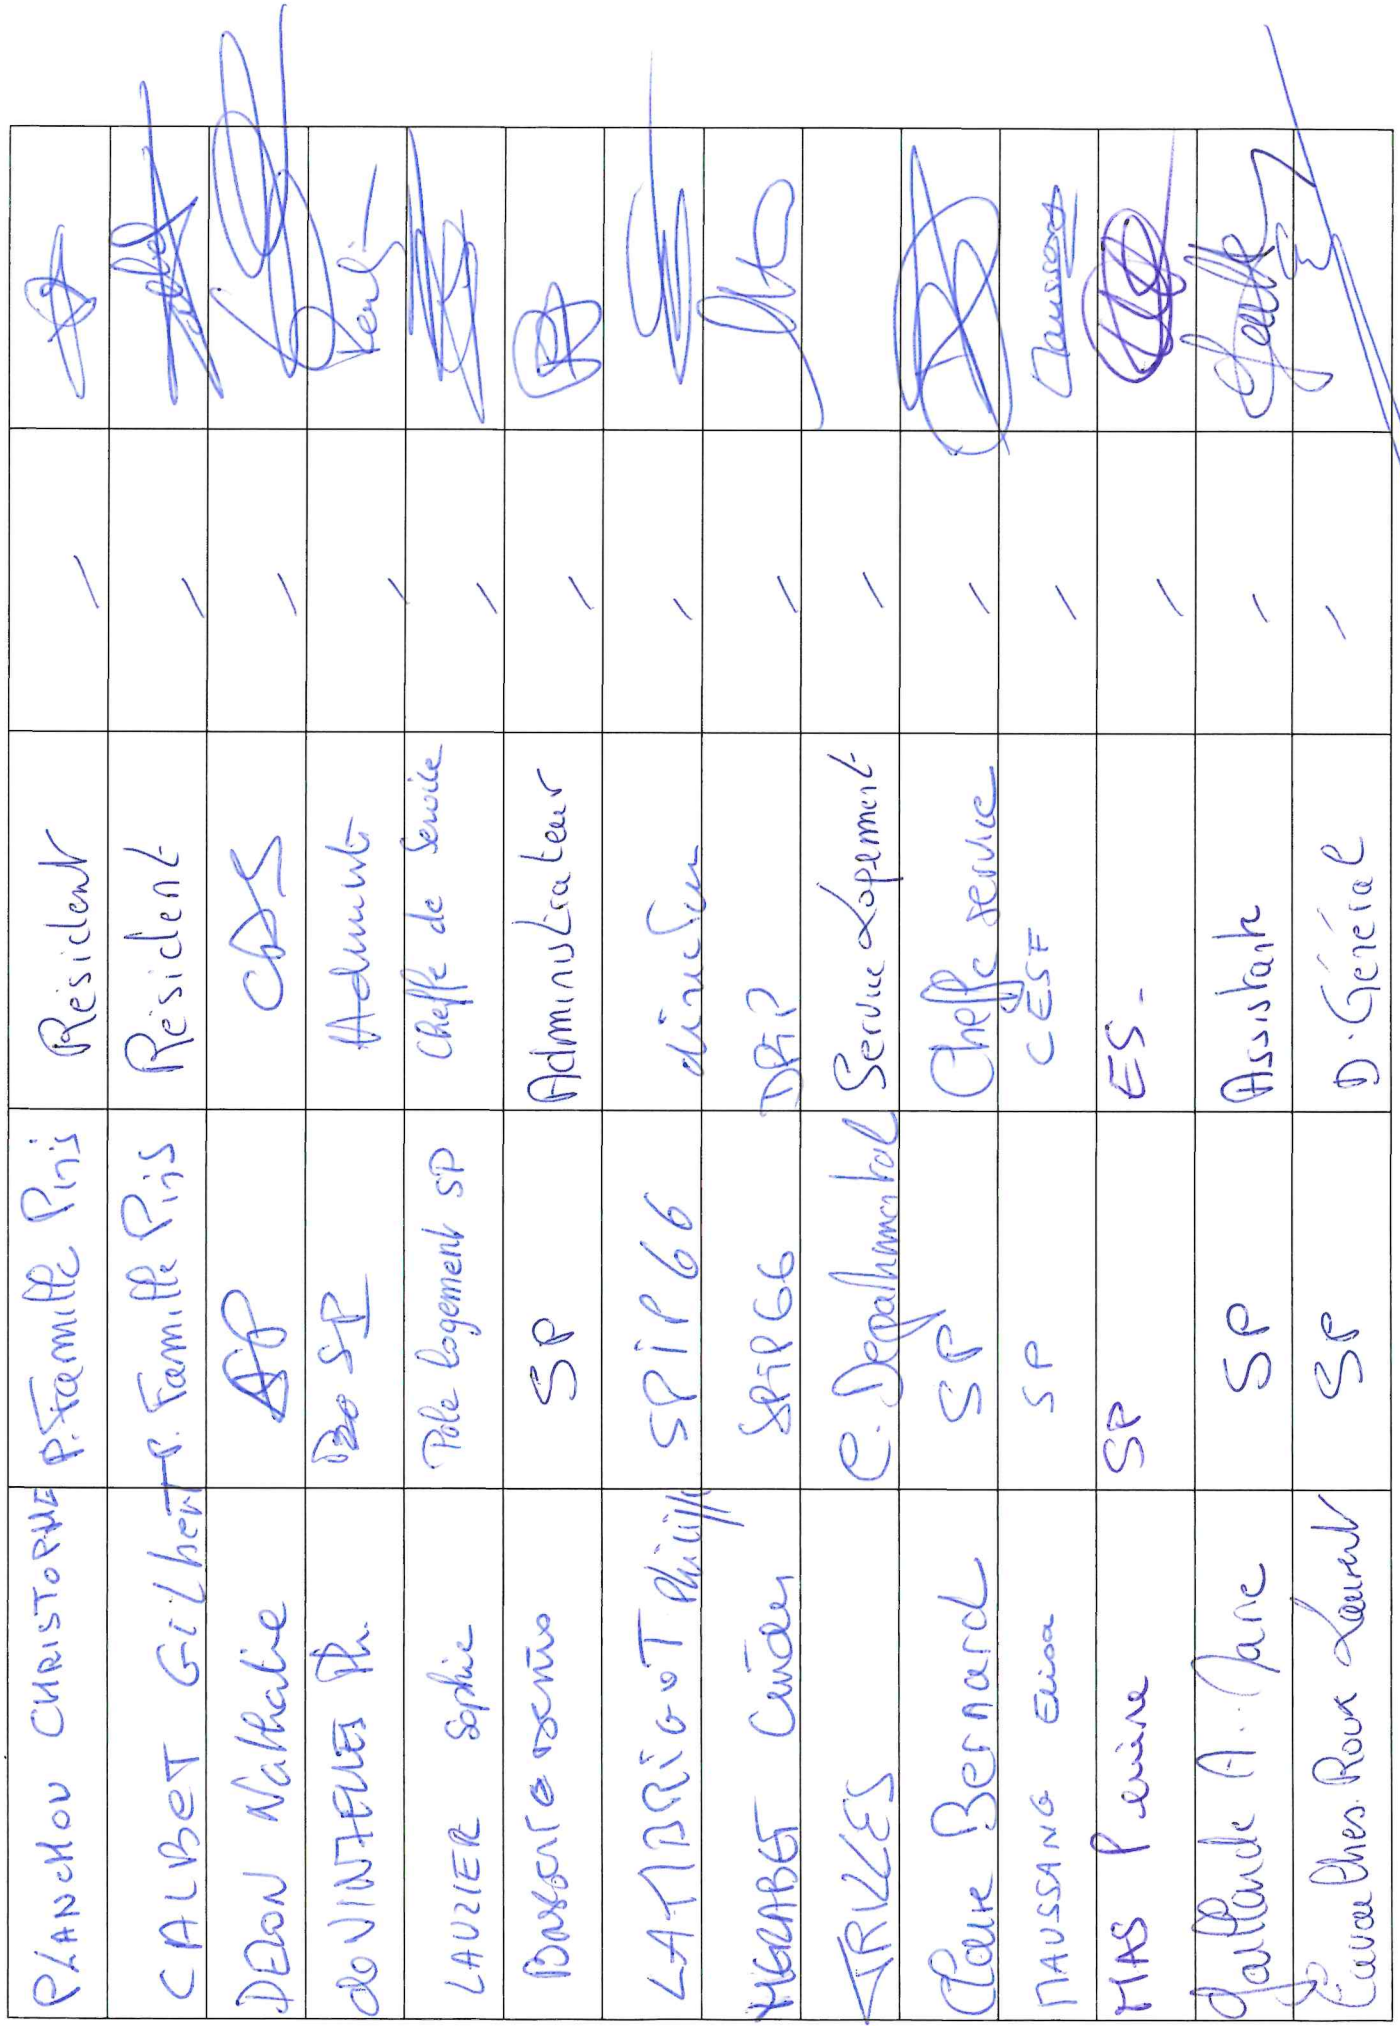 PLANCHOU CHRISTOPHE P. Famille Pins Résident
CALBET GiLbERT P. Famille Pins Résident
DEDON Nathalie SP CDS
Ph. SP
LAUZIER Sophie Pôle logement SP Cheffe de Service
SP Administrateur
LATABRIGOT Philippe SPiP66 directeur
MERABET SPiP66 DPiP
TRILLES C. Departemental Service Logement
Claire Bernard SP Cheffe service
MAUSSANG Elisa SP CESF Maussang
MAS Perrine SP ES-
A. Marie SP Assistante
Roux Laurent SP D. Général